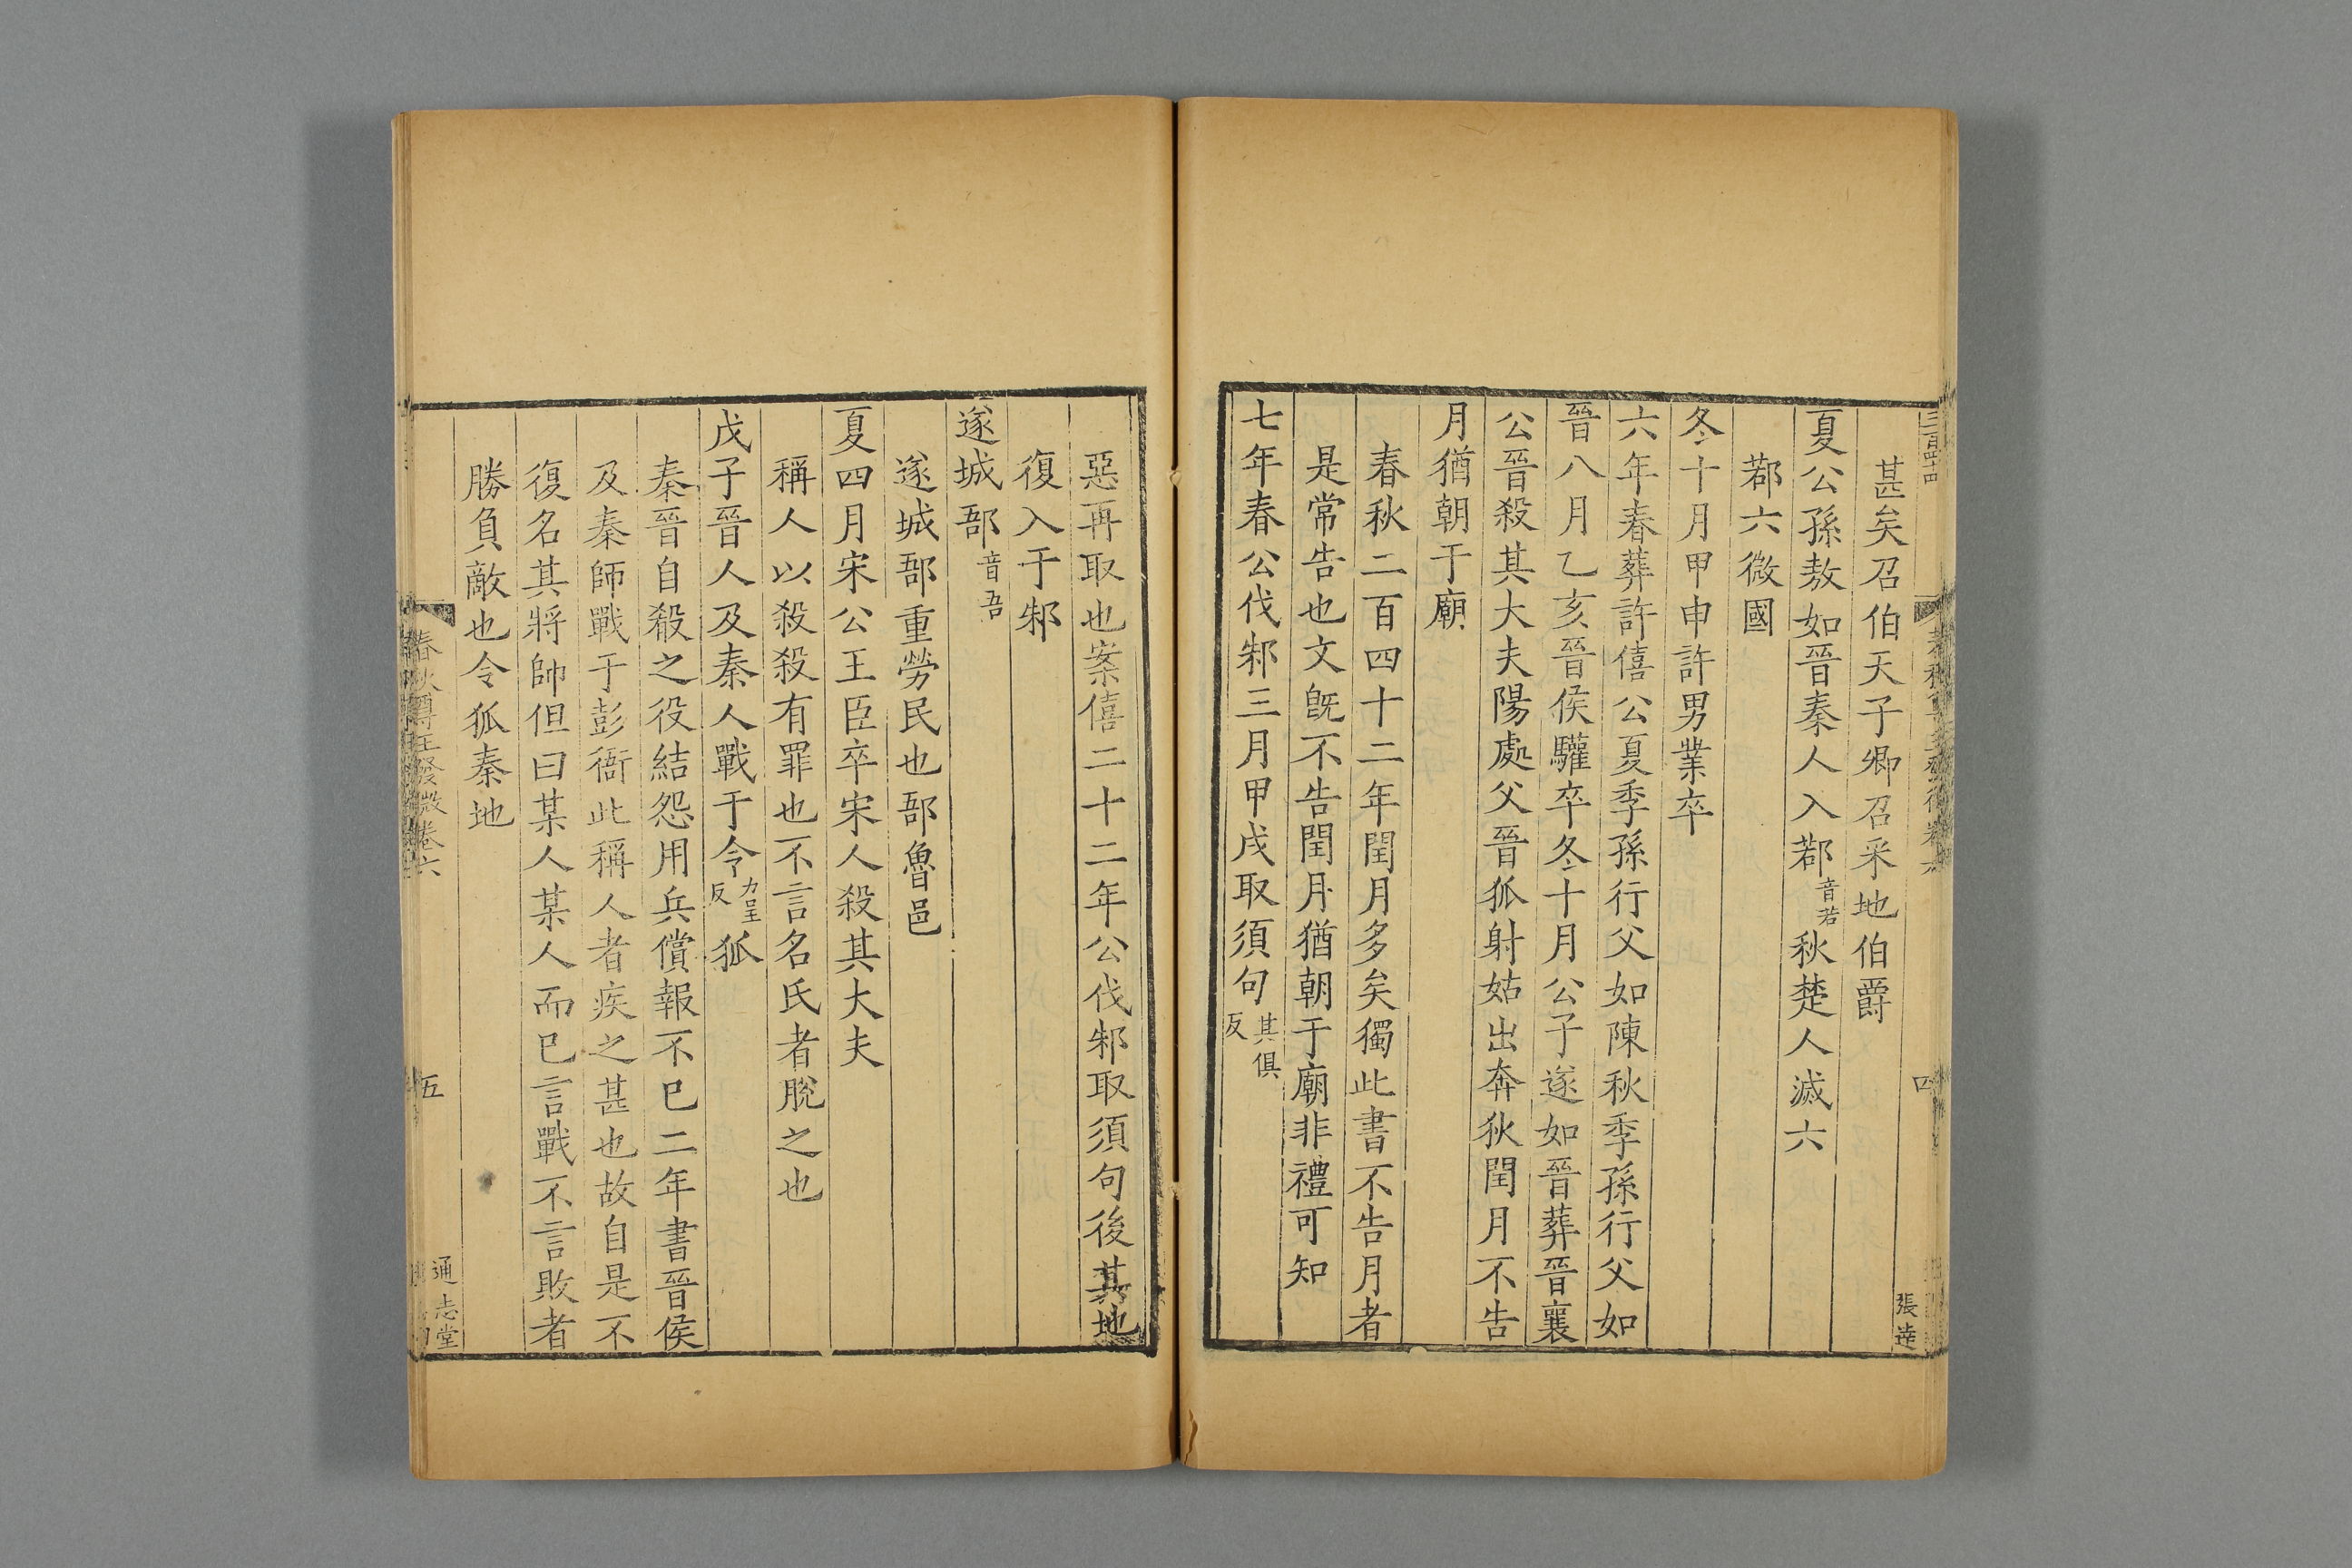 甚矣召伯天子卿召采地伯爵
夏公孫敖如晉秦人入鄀音若秋楚人滅六
鄀六微國
冬十月甲申許男業卒
六年春葬許僖公夏季孫行父如陳秋季孫行父如
晉八月乙亥晉侯驩卒冬十月公子遂如晉葬晉襄
公晉殺其大夫陽處父晉狐射姑出奔狄閏月不告
月猶朝于廟
春秋二百四十二年閏月多矣獨此書不告月者
是常告也文旣不告閏月猶朝于廟非禮可知
七年春公伐邾三月甲戌取須句其俱反
四
張逵
惡再取也案僖二十二年公伐邾取須句後其地
復入于邾
遂城郚音吾
遂城郚重勞民也郚魯邑
夏四月宋公王臣卒宋人殺其大夫
稱人以殺殺有罪也不言名氏者脫之也
戊子晉人及秦人戰于令力呈反狐
秦晉自殽之役結怨用兵償報不已二年書晉侯
及秦師戰于彭衙此稱人者疾之甚也故自是不
復名其將帥但曰某人某人而已言戰不言敗者
勝負敵也令狐秦地
春秋尊王發微卷六
五
通志堂